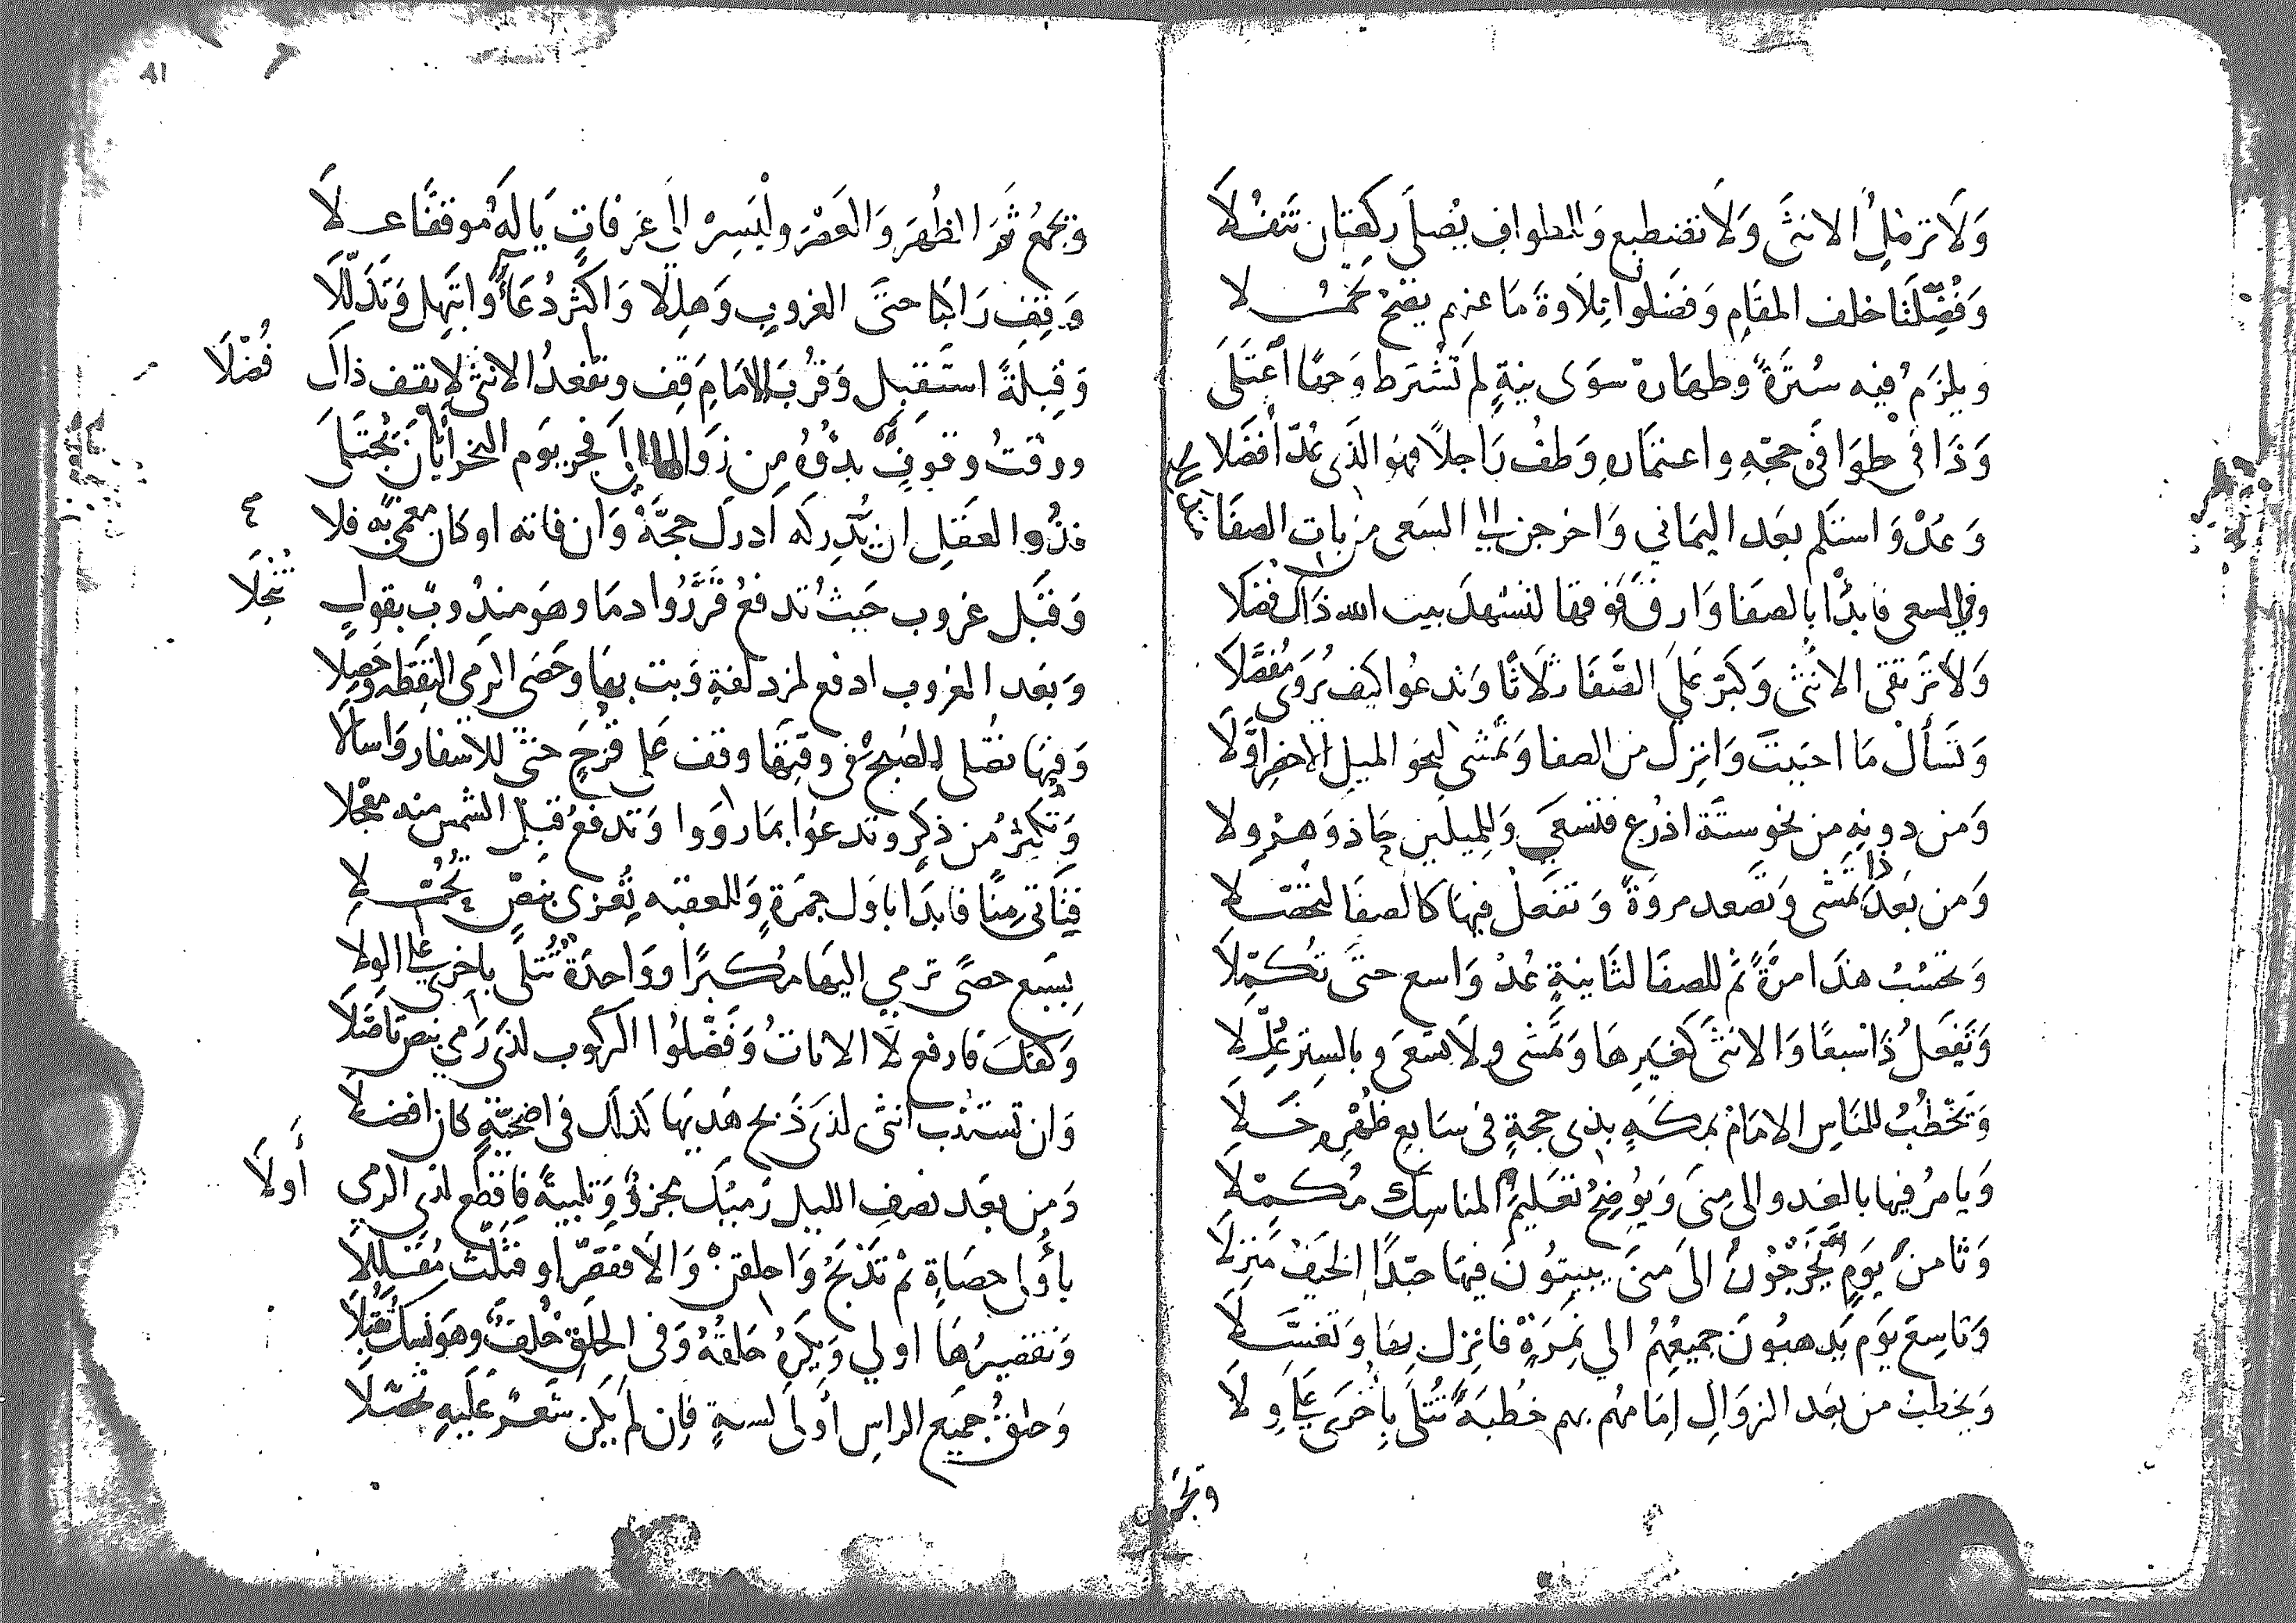 وَلَا ترمُلِ الانثَى وَلَا تضطبع وَللطواف يُصلَى ركعتان تَنفُّلَا
وَفُضِّلَتَا خلف المقَام وَفضَلوا تلاوةَ مَا عنهم يصحُّ
ويلزمُ فيه سُترَةٌ وطهَارة سوَى نيةٍ لم تُشترط وَجهًا اَعتَلَى
وَذَا في طوَافَي حجّهِ واعتمَاره وَطفُ رَاجلًا فهوَ الذَى عُدّ أفضَلا
وَعُدْ وَاستَلم بعَد اليمَاني وَاخرجن الى السَعى من باب الصفَا
وفي السعى فابدَأ بالصفَا وَارق فَوقها لتشهدَ بيت الله ذَاك فُضّلَا
وَلَا تَرتقى الانثَى وَكَبّر عَلَى الصَّفَا ثلَاثًا وَتدعُوا كيف يُروَى مُفصَّلَا
وَتسَألْ مَا احبَبتَ وَانزل من الصفا وَتمَشى لنحو الميل الاخضر اوَّلَا
وَمن دونهِ من نحو ستَّة اذرُع فتسعَى وَللميلَين حَاذ وَهَرولا
وَمن بَعد ذَا تمَشى وَتصَعد مروَةً وَتفعَلْ فيهَا كالصفَا
وَتحسُبُ هذَا مرَّةً ثمّ للصفَا لثَانيةٍ عُدْ وَاسع حتَّى تُكمّلَا
وَتفعَلُ ذَا سبعًا وَالانثَى كَغَيرِهَا وَتمَشى ولَا تسعَى وبالستر
وَيَخْطُبُ للنَاسِ الامَامُ بمكَةٍ بذى حجةٍ فى سَابع ظُهْرِه
وَيَامرُ فيها بالغدو الى مِنَى وَيُوضِحُ تعَليمَ المناسِك مُكمّلَا
وَثامنَ يَومٍ يَخْرجُونَ الَى منَى يبيتُونَ فيهَا حبّذَا الخيَفُ مَنزِلَا
وَتاسِعَ يَوم يَذهبُونَ جميعُهُمُ الى نَمِرَةٍ فانزل بهَا وَتغسَّلَا
وَيخطبُ من بعَد الزوَالِ اِمَامهُم بهم خُطبَةً تُتلَى بِأخرَى
وتجمع
٨١
وَتجمَعُ ثمَّ الظُهرَ وَالعَصْرَ ولْيَسِرْ الى عَرفاتٍ يَا لَهُ موقفًا عَلَا
وَقِفْ رَاكبًا حتَّى الغروبِ وَهلِّلا وَاكثر دُعَاءً وابتَهِل وَتذَلّلَا
وَقِبلَةً استَقبِل وَقُربَ الامَامِ قِف وتقعدُ الانثَى لا تقف ذاك فُضّلَا
ووقتُ وقوفٍ بدؤُهُ مِن زوَالها الى فجر يَوم النحر
فذُوا العقَلِ ان يُدركه اَدرك حجَّةً وَان فاته او كان مغمى به فلا
وَقبَل غروب حَيثُ تدفعُ قَرَّرُوا دمَا وهوَ مندُوبٌ بقول
وَبعَد الغروب ادفع لمزدلفةٍ وَبت بهَا وَحَصَى الرمى التقطه وحصِلا
وَفيهَا تصُلى الصُبحَ فى وقتهَا وقف عَلى قُزَحٍ حتىَّ للاسفار وَاسألَا
وَتكثرُ من ذكرٍ وتدعوا بمَا روَوا وَتدفعُ قبل الشمس منه معجّلا
فتَاتى مِنًا فابدَا باوّل جمرَةٍ وَللعقبَه تُعزى بنصٍّ
بِسَبع حصًى ترمي اليهَا مُكبرًا ووَاحدَةً تُتلَى باخرى عَلَى الولا
وَكفكَ فارفع لَا الاناثُ وَفَضّلُوا الركُوب لذى رَمى بنص
وَان تستَنُب انثَى لذى ذَبح هَديهَا كذلك فى اضحيّةٍ كان افضلَا
وَمن بعَد نصف الليل رَميُكَ مجزئٌ وَتلبيةً فاقطع لدى الرمي أَولَا
بأُولى حصَاةٍ ثمْ تَذبَحُ وَاحلقن وَالَا فقصّر او فثَلّث مُقللَّا
وَتقصيرُهَا اولي وَيُكرَهُ حَلقُهُ وَفى الحلق خُلفٌ وهوَ نسك
وَحلقُ جميَع الراس أولَى لسنةٍ فاِن لَم يكن شَعرٌ عَلَيهِ